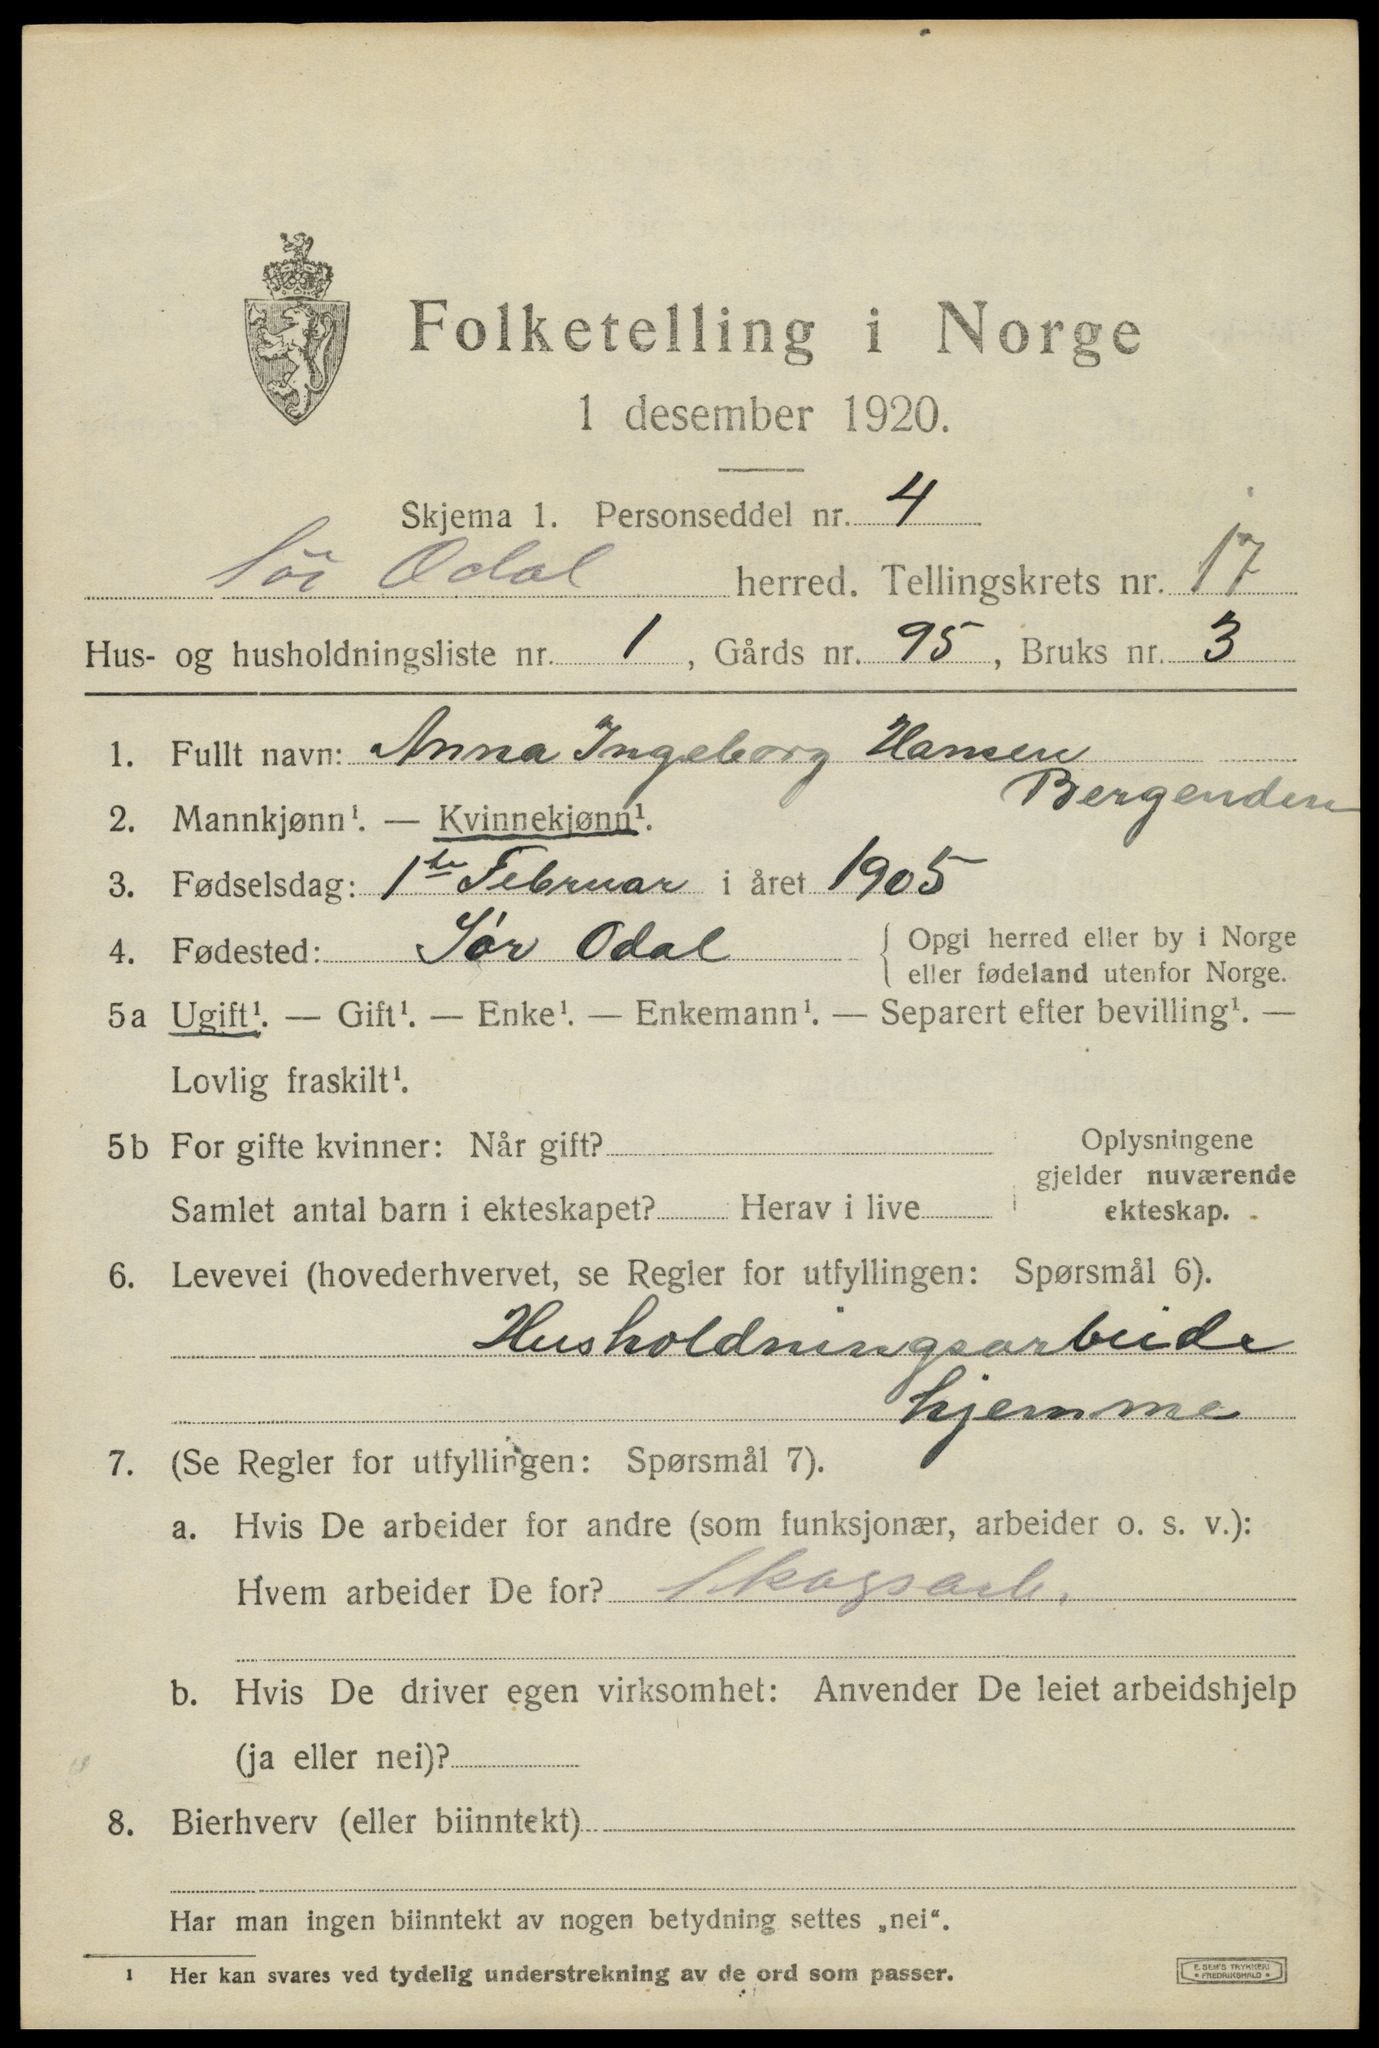 Folketelling i Norge
1 desember 1920.
Skjema 1. Personseddel nr. 4
Sör Odal herred. Tellingskrets nr. 17
Hus- og husholdningsliste nr. 1, Gårds nr. 95, Bruks nr. 3
1. Fullt navn: Anna Ingeborg Hansen
Bergenden
2. Mannkjønn¹. — Kvinnekjønn¹.
3. Fødselsdag: 1ste Februar i året 1905
4. Fødested: Sór Odal { Opgi herred eller by i Norge
eller fødeland utenfor Norge.
5a Ugift¹. — Gift¹. — Enke¹. — Enkemann¹. — Separert efter bevilling¹. —
Lovlig fraskilt¹.
5b For gifte kvinner: Når gift?
Samlet antal barn i ekteskapet? Herav i live
Oplysningene
gjelder nuværende
ekteskap.
6. Levevei (hovederhvervet, se Regler for utfyllingen: Spørsmål 6).
Husholdningsarbeide
hjemme
7. (Se Regler for utfyllingen: Spørsmål 7).
a. Hvis De arbeider for andre (som funksjonær, arbeider o. s. v.):
Hvem arbeider De for? Skogsarb.
b. Hvis De driver egen virksomhet: Anvender De leiet arbeidshjelp
(ja eller nei)?
8. Bierhverv (eller biinntekt)
Har man ingen biinntekt av nogen betydning settes „nei“.
¹ Her kan svares ved tydelig understrekning av de ord som passer.
E. SEM'S TRYKKERI
• FREDRIKSHALD •